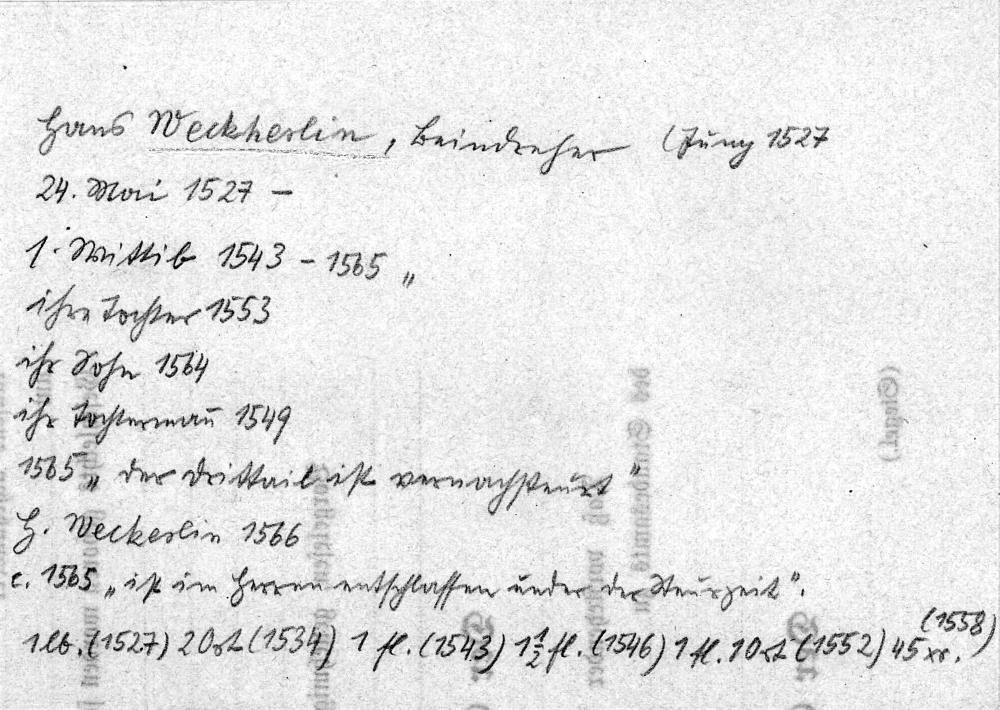 Hans Weckherlin, Beindreher (Juny 1527
24. Mai 1527 –
1. Wittib 1543 – 1565 "
ihre Tochter 1553
ihr Sohn 1564
ihr Tochtermañ 1549
1565 „der Drittail ist vernachsteurt"
H. Weckerlin 1566
c. 1565 „ist im Herren entschlaffen under der Steurzeit".
(1558)
1 lb. (1527) (1534) 1 fl. (1543) 1½ fl. (1546) 1 fl. (1552) 45 xr.